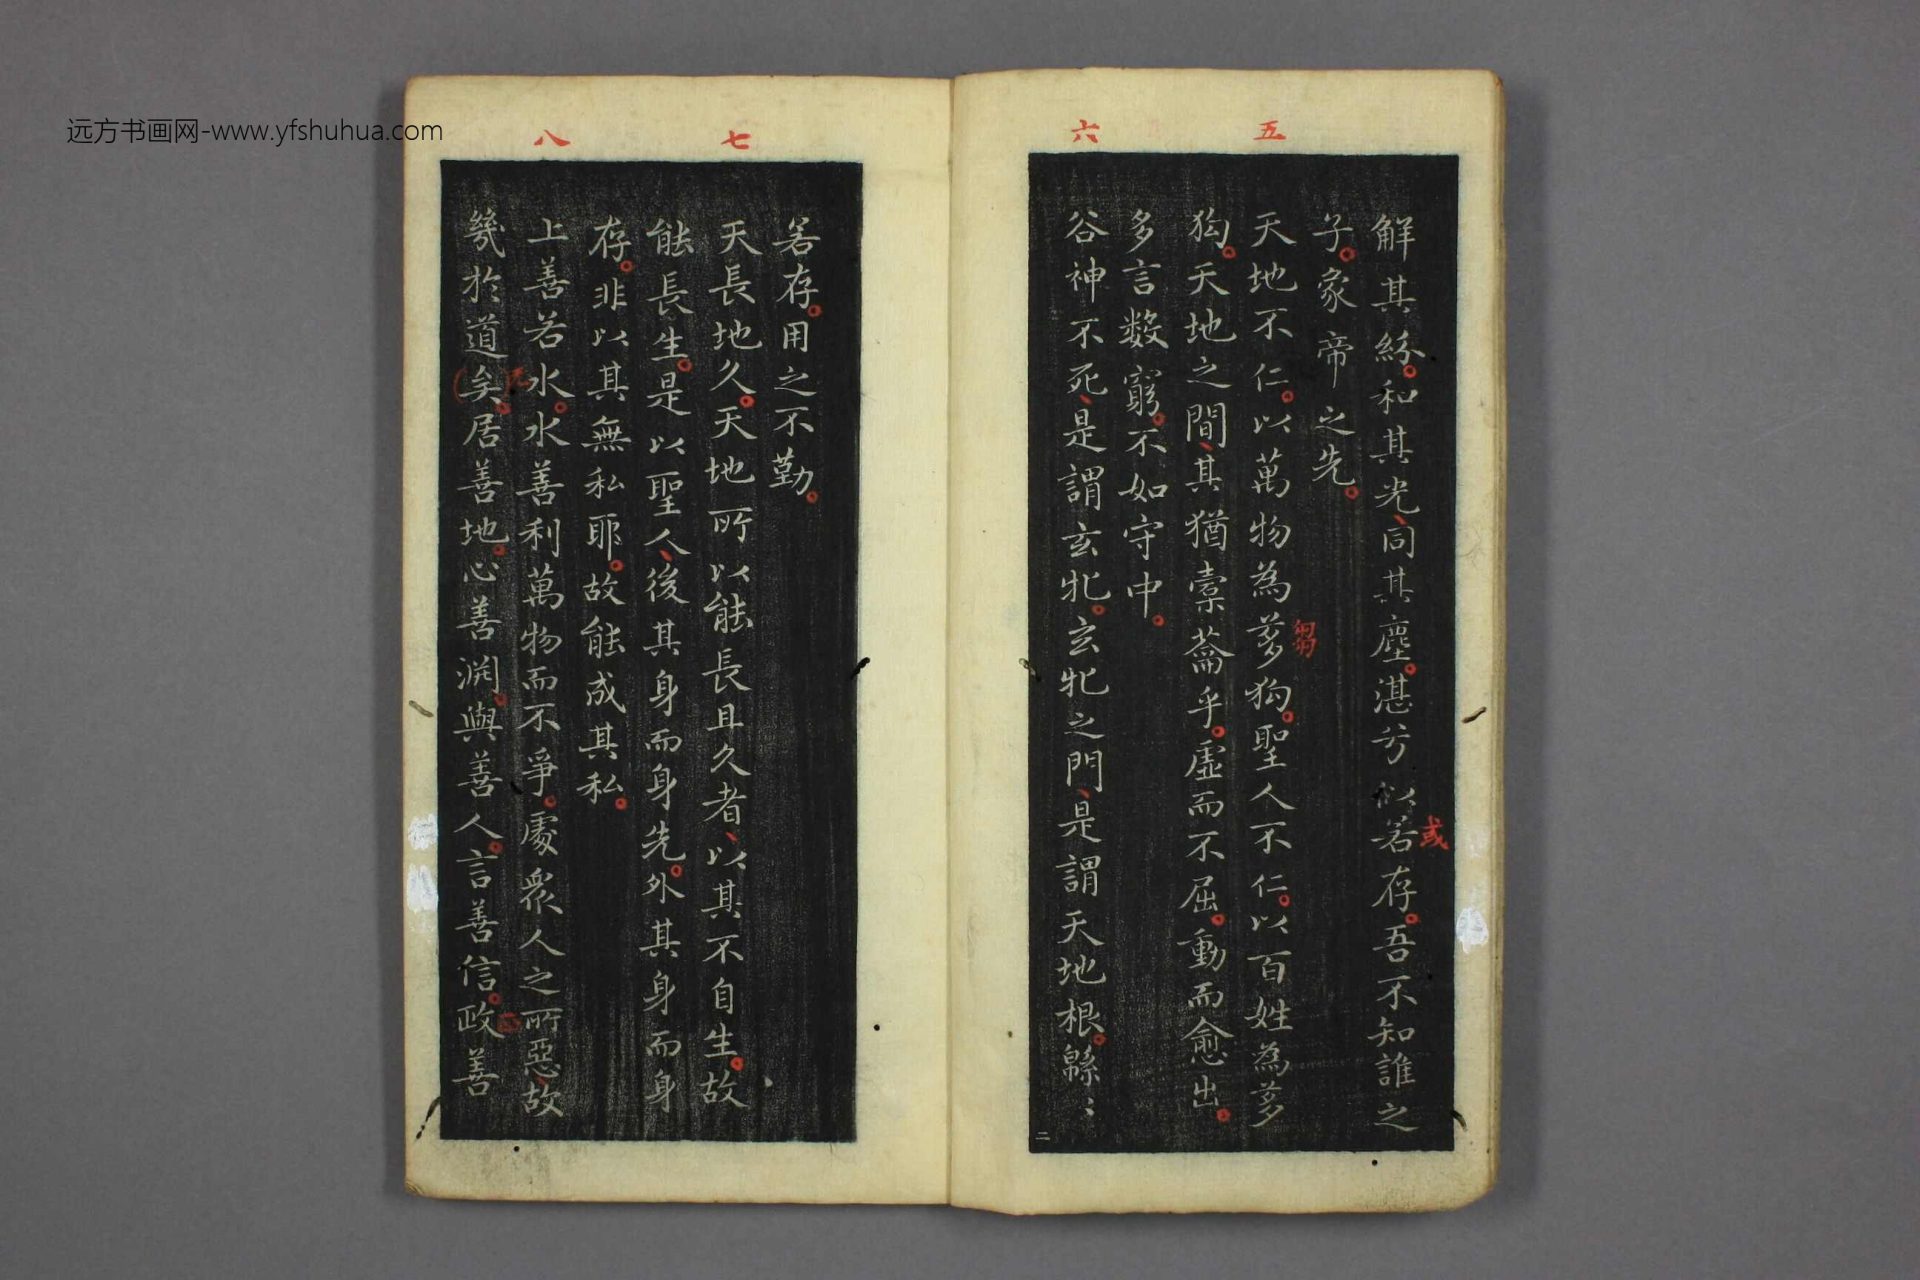 远方书画网-www.yfshuhua.com
五
六
解其紛。和其光、同其塵。湛兮似若存。吾不知誰之
或
子。象帝之先。
天地不仁。以萬物為芻狗。聖人不仁。以百姓為芻
芻
狗。天地之間、其猶橐籥乎。虛而不屈。動而愈出。
多言數窮。不如守中。
谷神不死、是謂玄牝。玄牝之門、是謂天地根。緜〻
二
七
八
若存。用之不勤。
天長地久。天地所以能長且久者、以其不自生。故
能長生。是以聖人、後其身而身先。外其身而身
存。非以其無私耶。故能成其私。
上善若水。水善利萬物而不爭。處衆人之所惡、故
幾於道矣。居善地。心善淵。與善人。言善信。政善